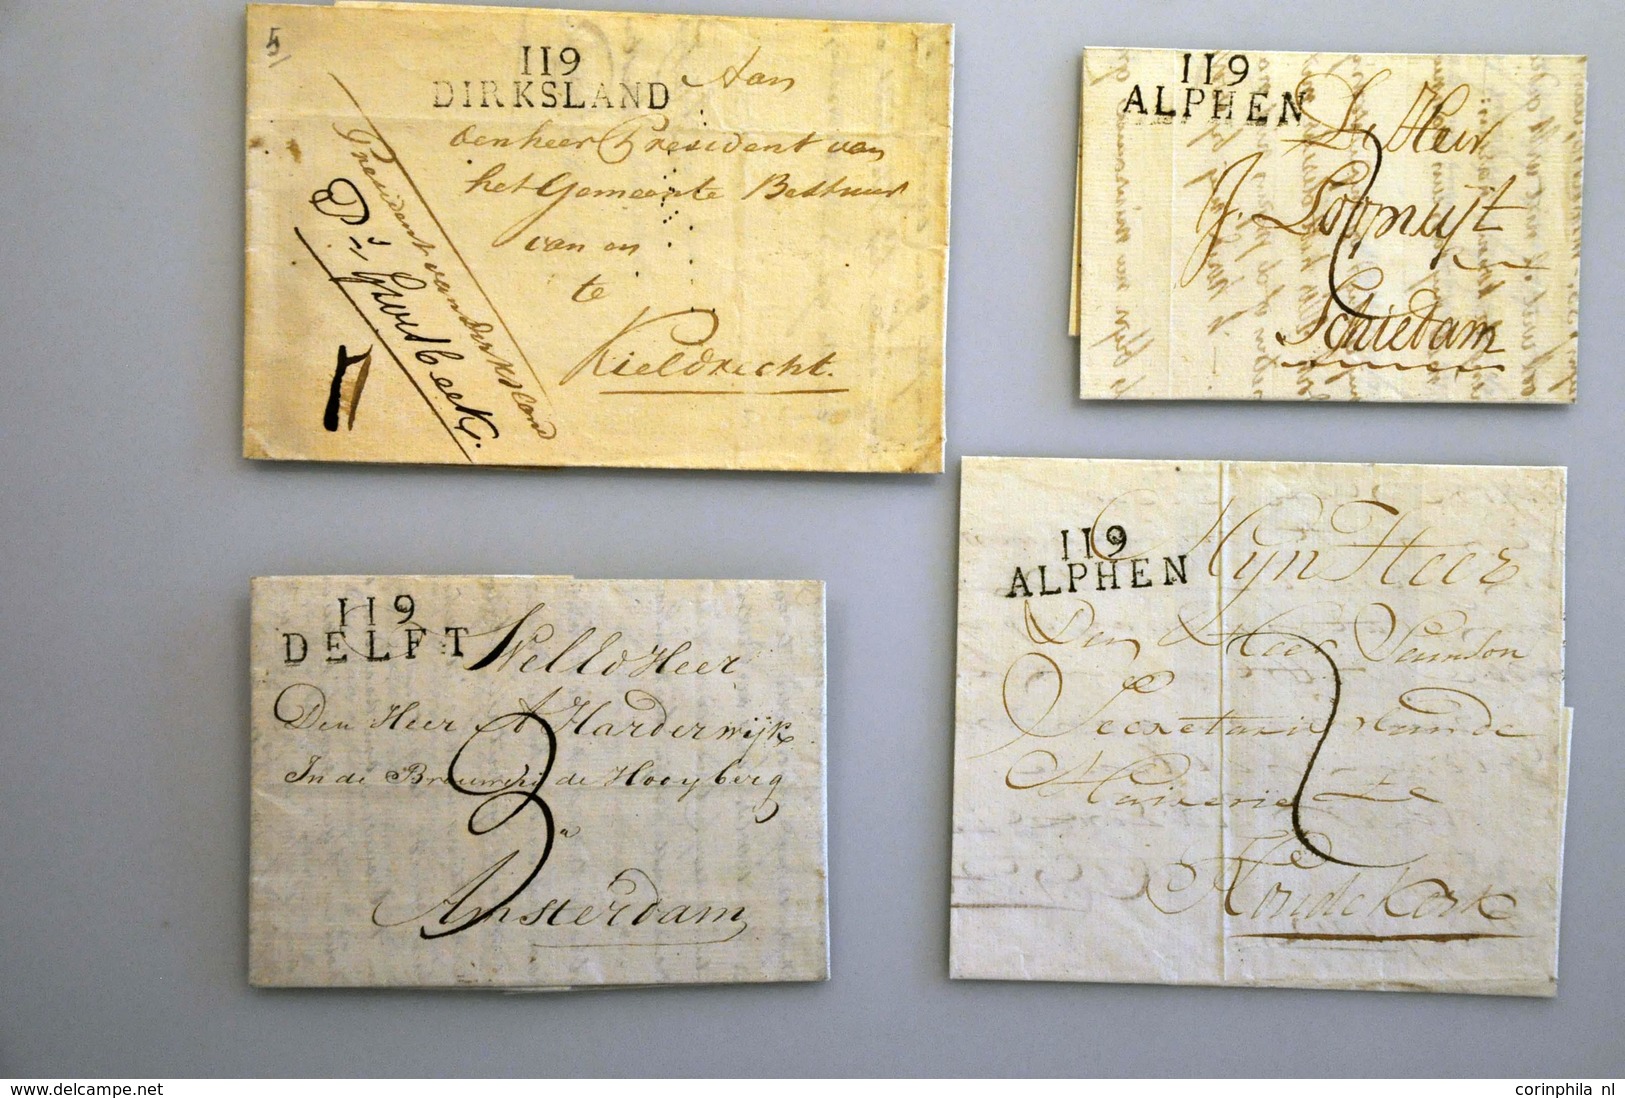 5/
119
DIRKSLAND
Aan
den heer President van
het Gemeente Bestuur
van en
te
Kieldrecht.
President van Dirksland
119
ALPHEN
De Heer
J. Loopuijt
Schiedam
119
DELFT
WelEd Heer
Den Heer A Harderwijk
In de Brouwerij de Hooyberg
a
Amsterdam
3
119
ALPHEN
Mijn Heer
Den Heer
Secretaris van de
te
Koudekerk
corinphila nl